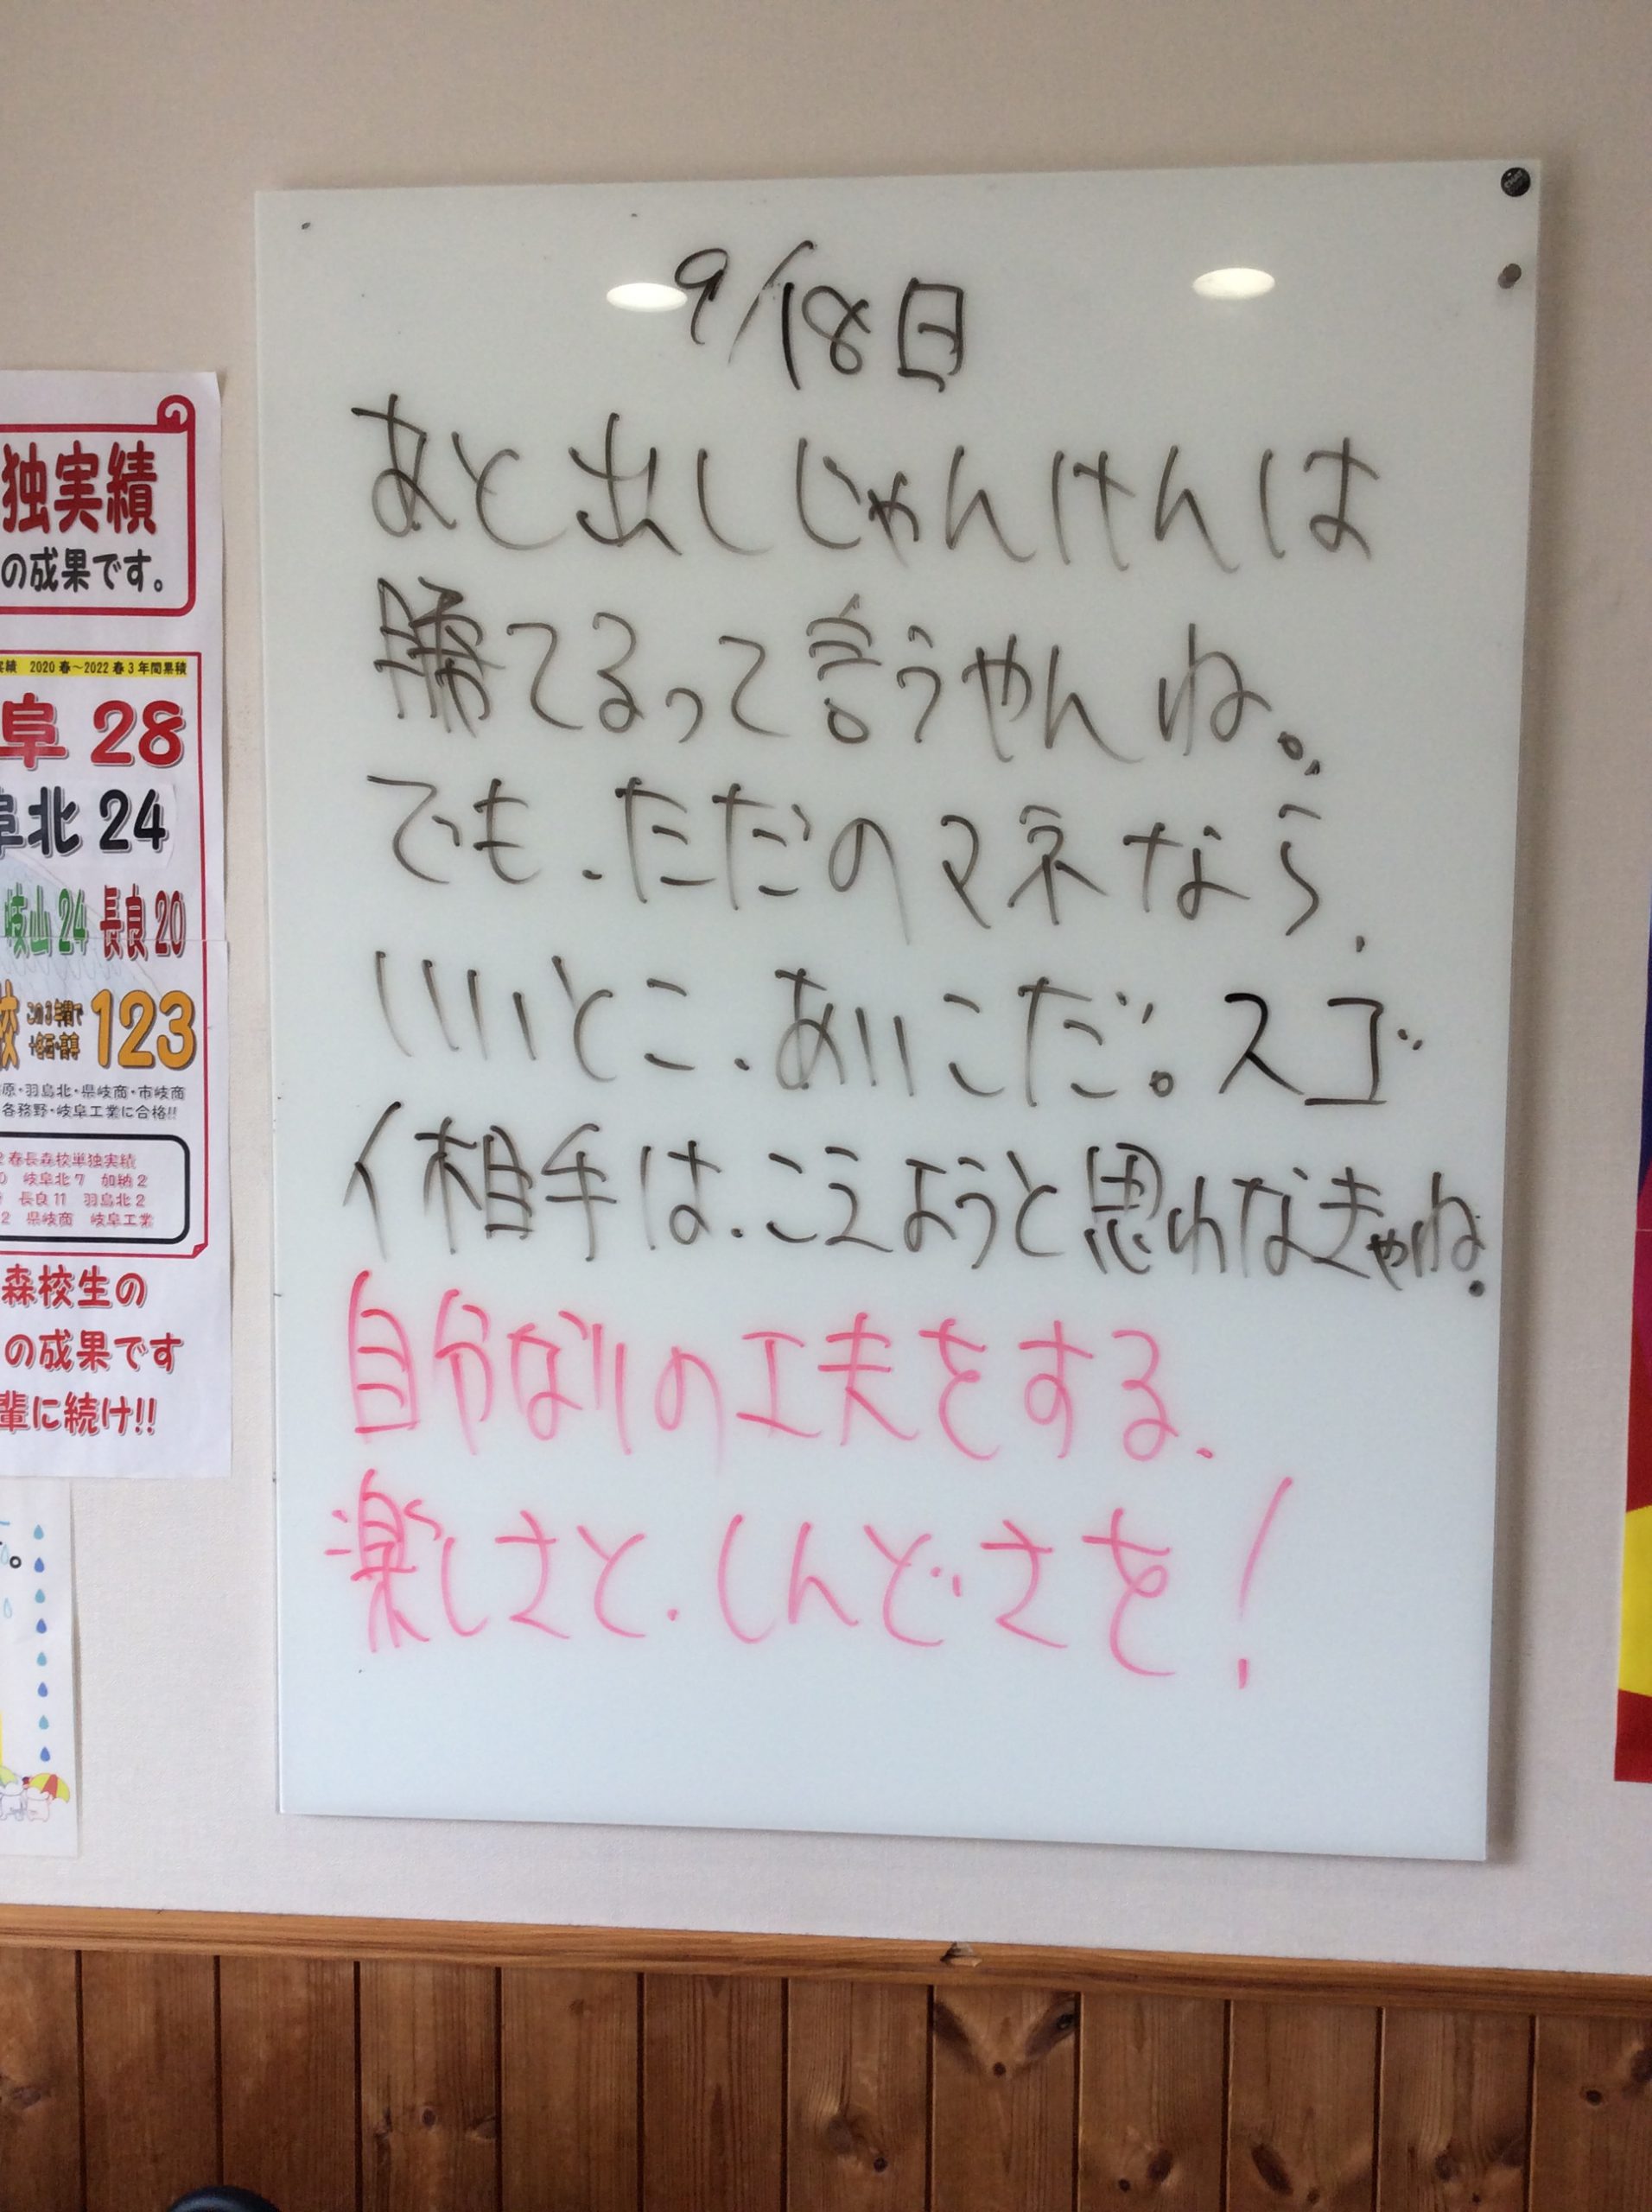 9/18日
あと出しじゃんけんは
勝てるって言うやんね。
でも、ただのマネなら、
いいとこ、あいこだ。スゴ
イ相手は、こえようと思わなきゃね。
自分なりの工夫をする、
楽しさと、しんどさを!
独実績
の成果です。
実績 2020春~2022春3年間累積
阜 28
阜北 24
岐山 24 長良 20
校 この3年間で 123
原・羽島北・県岐商・市岐商
各務野・岐阜工業に合格!!
春長森校単独実績
岐阜北7 加納2
長良11 羽島北2
2 県岐商 岐阜工業
森校生の
の成果です
輩に続け!!
。